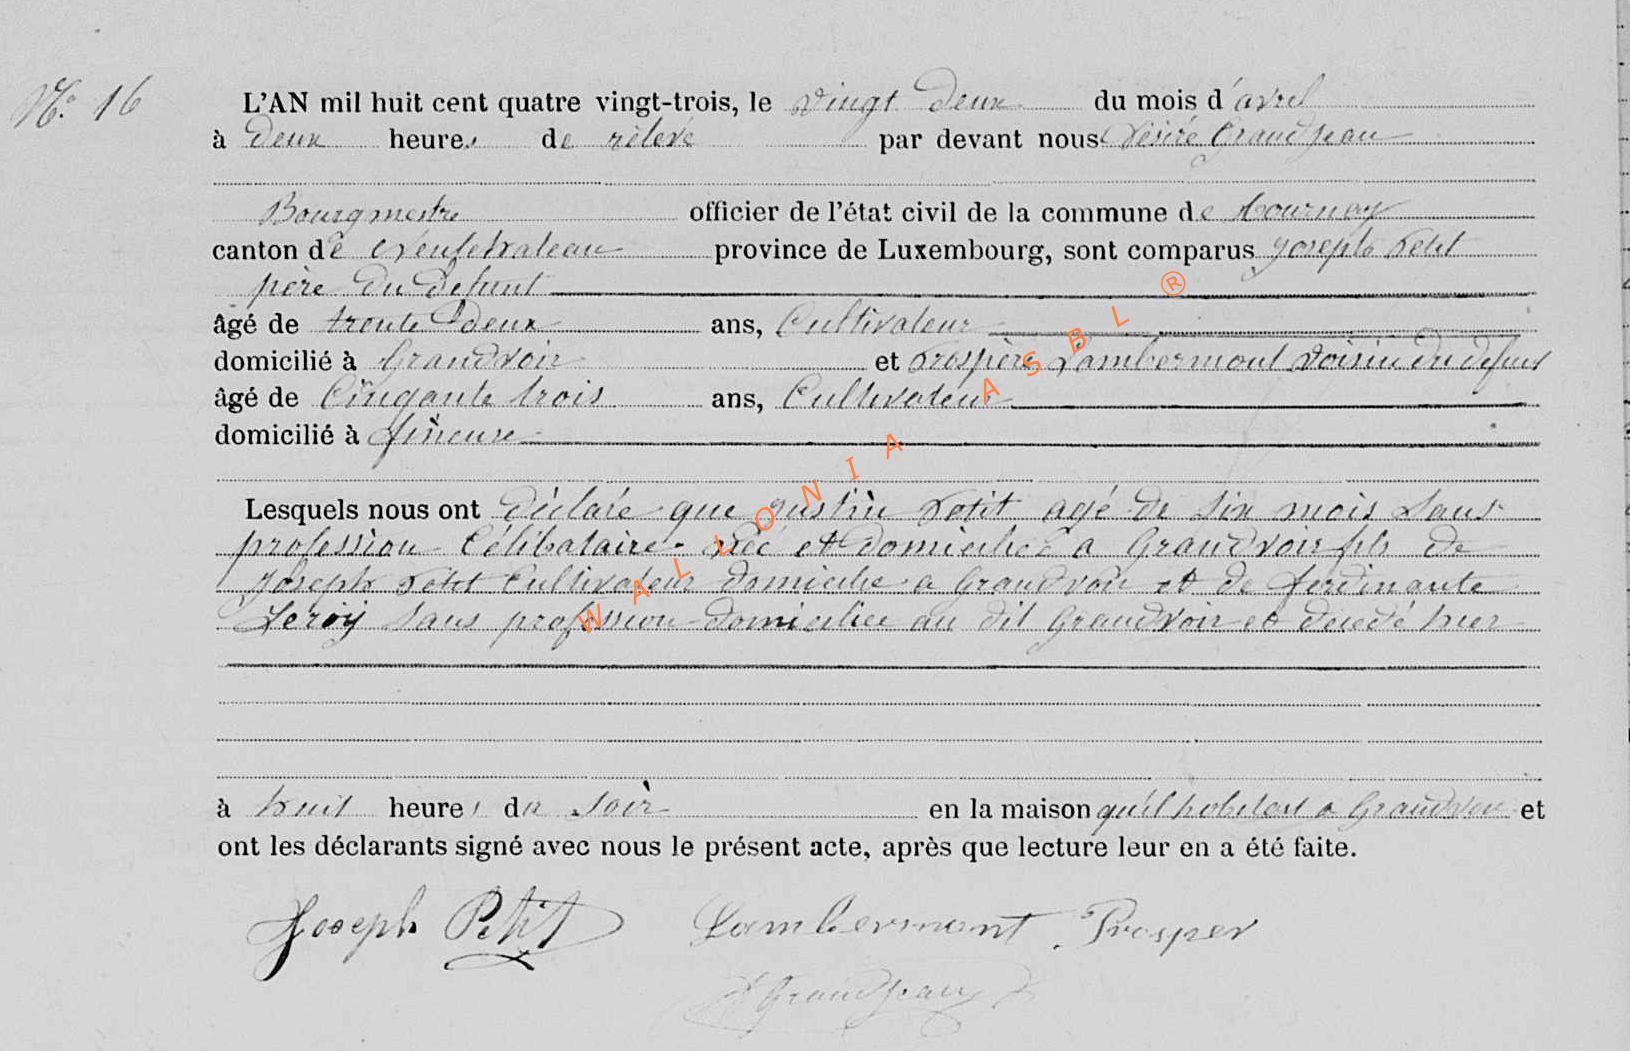 N.° 16
L'AN mil huit cent quatre vingt-trois, le vingt deux du mois d'avril
à deux heures de rélevé par devant nous Désiré Grandjean
Bourgmestre officier de l'état civil de la commune de tournay
canton de Neufchateau province de Luxembourg, sont comparus Joseph Petit
père du défunt
âgé de trente deux ans, Cultivateur
domicilié à Grandvoir et Prospère Lambermont voisin du défunt
âgé de Cinqante trois ans, Cultivateur
domicilié à
Lesquels nous ont déclaré que Justin Petit agé de six mois sans
profession Célibataire né et domicilié a Grandvoir fils de
Joseph Petit Cultivateur domicilié a Grandvoir et de ferdinante
Leroy sans profession domiciliée au dit Grandvoir et décédé hier
à huit heures du soir en la maison qu'il habitait a Grandvoir et
ont les déclarants signé avec nous le présent acte, après que lecture leur en a été faite.
Joseph Petit Lambermont Prosper
D Grandjean
WALLONIA ASBL ®